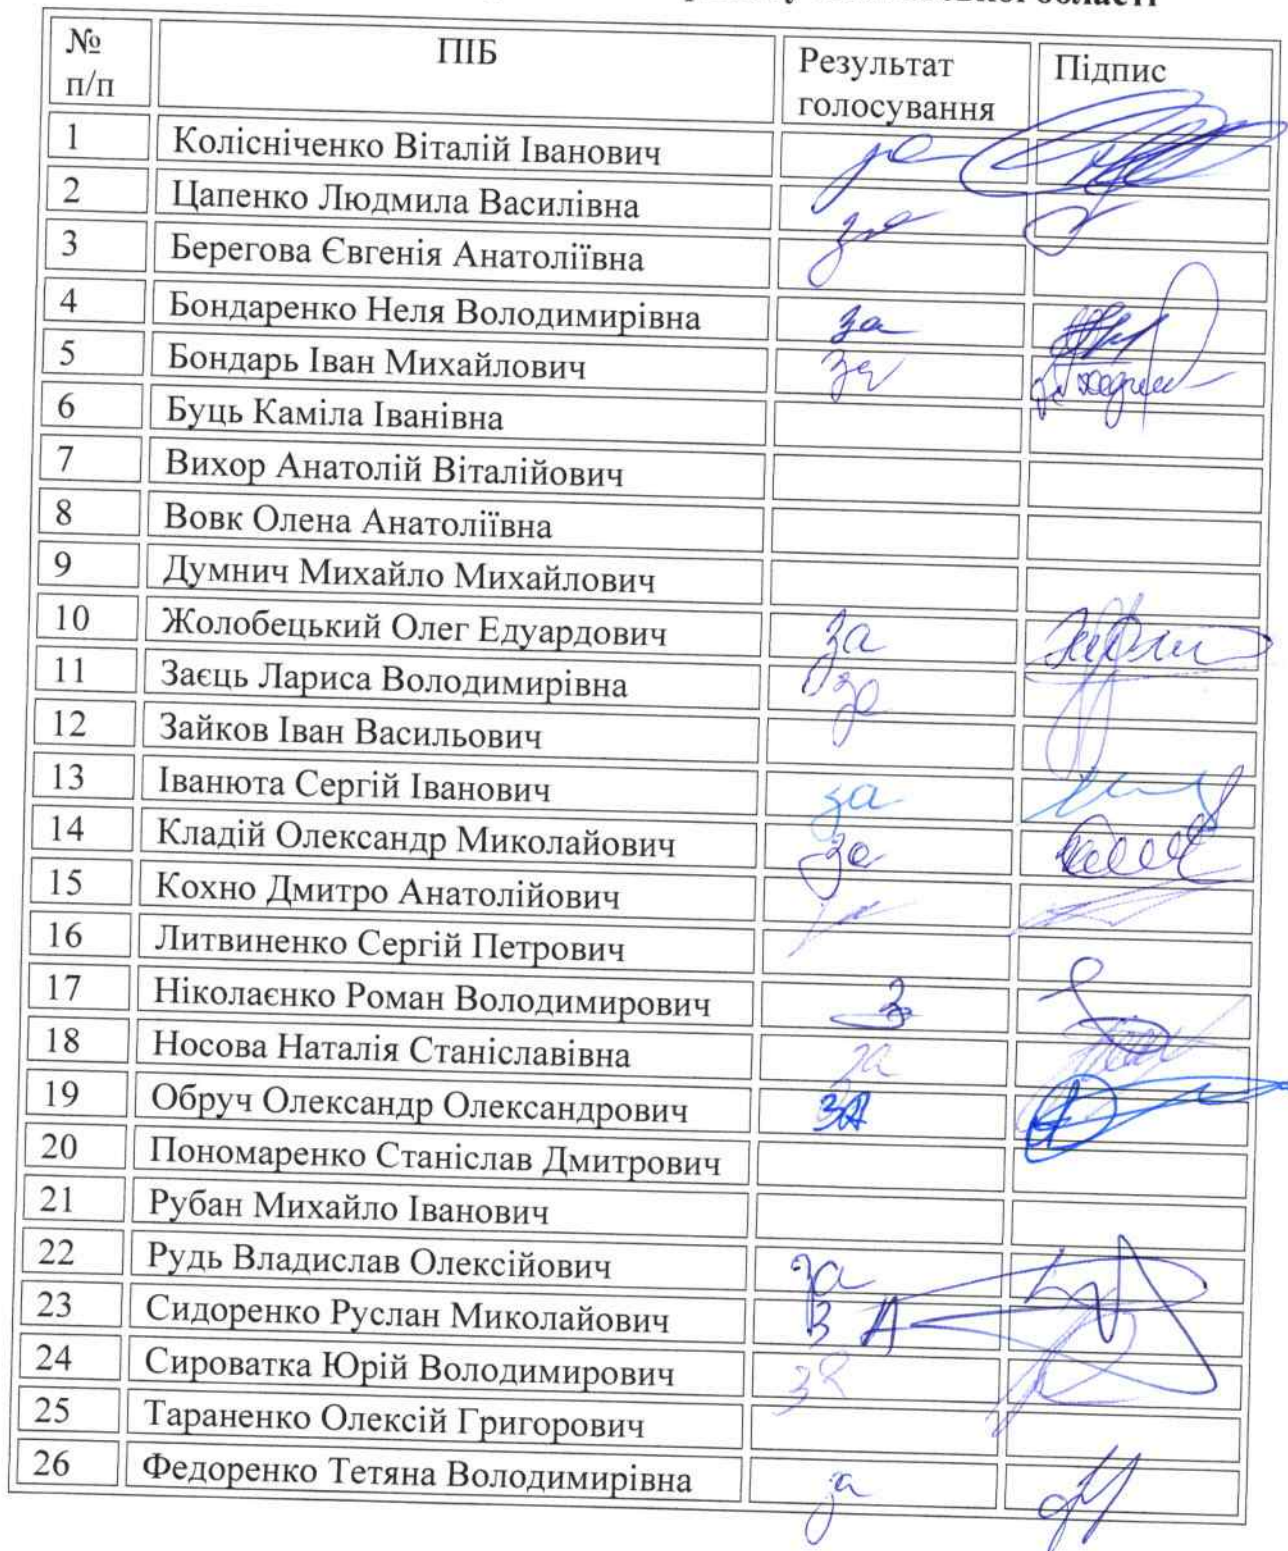 області
№ п/п ПІБ Результат голосування Підпис
1 Колісніченко Віталій Іванович за
2 Цапенко Людмила Василівна за
3 Берегова Євгенія Анатоліївна
4 Бондаренко Неля Володимирівна за
5 Бондарь Іван Михайлович за
6 Буць Каміла Іванівна
7 Вихор Анатолій Віталійович
8 Вовк Олена Анатоліївна
9 Думнич Михайло Михайлович
10 Жолобецький Олег Едуардович за
11 Заєць Лариса Володимирівна за
12 Зайков Іван Васильович
13 Іванюта Сергій Іванович за
14 Кладій Олександр Миколайович за
15 Кохно Дмитро Анатолійович
16 Литвиненко Сергій Петрович
17 Ніколаєнко Роман Володимирович
18 Носова Наталія Станіславівна за
19 Обруч Олександр Олександрович ЗА
20 Пономаренко Станіслав Дмитрович
21 Рубан Михайло Іванович
22 Рудь Владислав Олексійович за
23 Сидоренко Руслан Миколайович ЗА
24 Сироватка Юрій Володимирович за
25 Тараненко Олексій Григорович
26 Федоренко Тетяна Володимирівна за